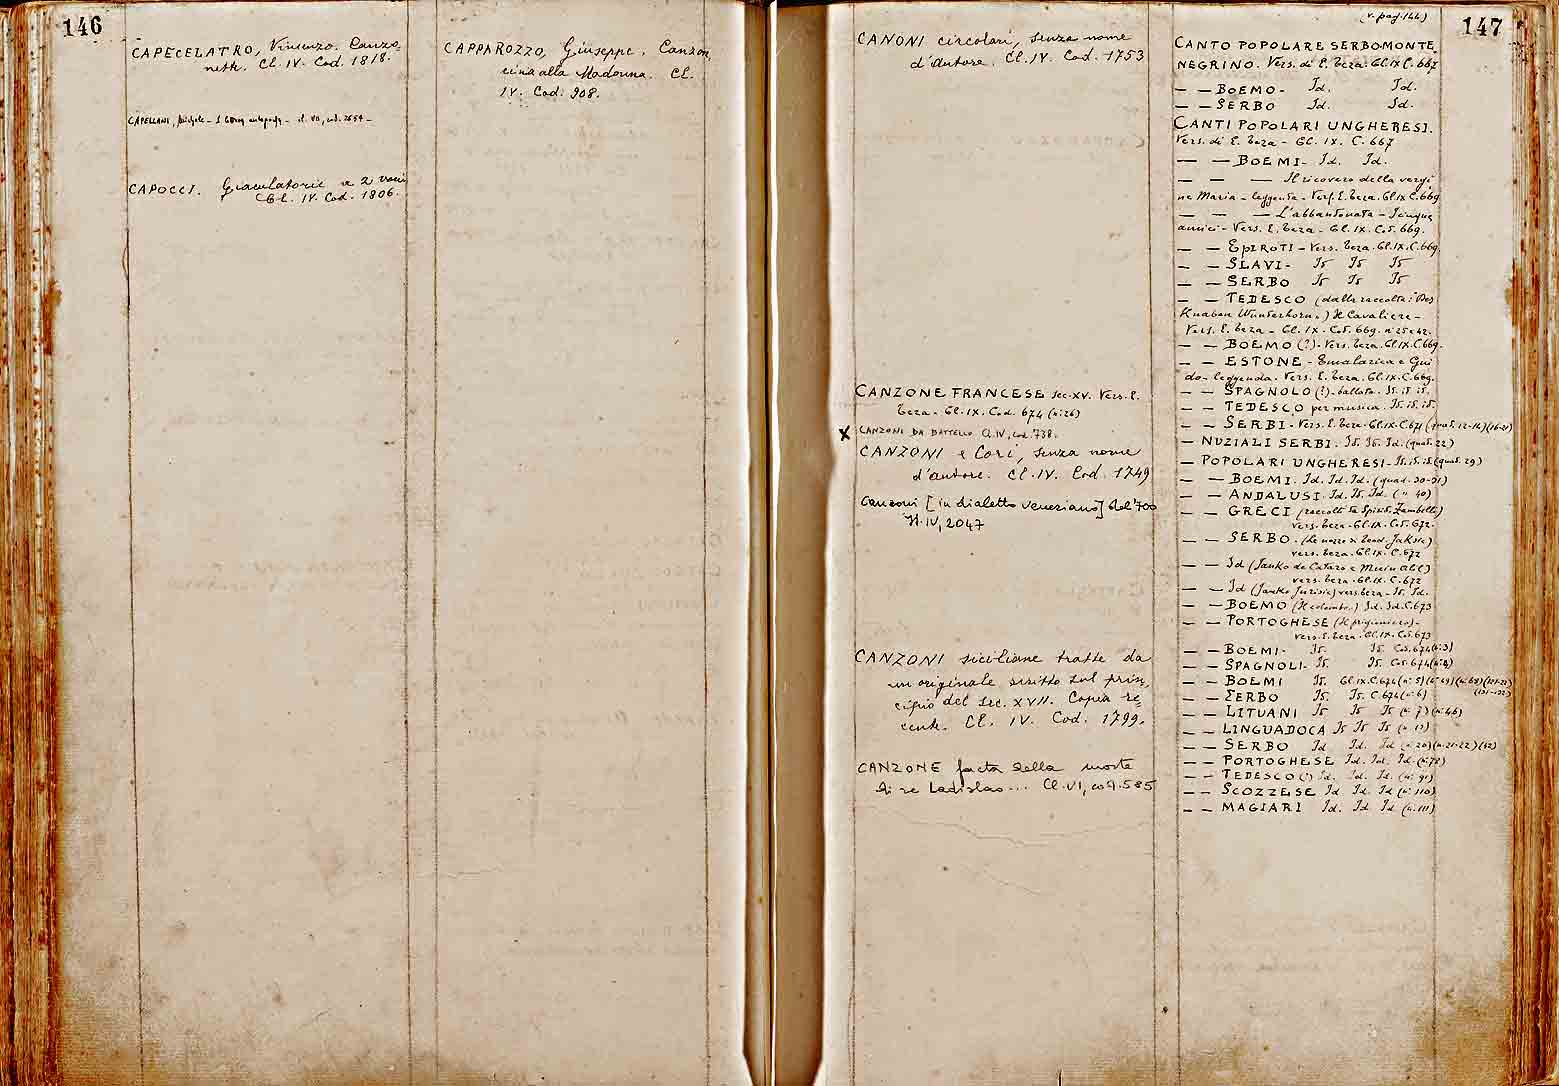 146
CAPECELATRO, Vincenzo. Canzo
nette. Cl. IV. Cod. 1818.
CAPELLANI, Michele - cl. VII, cod. 2554 -
CAPOCCI. Giaculatorie a 2 voci
Cl. IV. Cod. 1806.
CAPPAROZZO, Giuseppe. Canzon
cina alla Madonna. Cl.
IV. Cod. 908.
(v. pag. 144)
147
CANONI circolari, senza nome
d'autore. Cl. IV. Cod. 1753
CANZONE FRANCESE sec. XV. Vers. E.
Teza - Cl. IX. Cod. 674 (n: 26)
X CANZONI DA BATTELLO Cl. IV, cod. 738.
CANZONI e Cori, senza nome
d'autore. Cl. IV. Cod. 1749
Canzoni [in dialetto veneziano] del '700
It. IV, 2047
CANZONI siciliane tratte da
un originale scritto sul prin,
cipio del sec. XVII. Copia re,
cente. Cl. IV. Cod. 1799.
CANZONE facta della morte
di re Ladislao... Cl. VI, cod. 585
CANTO POPOLARE SERBO-MONTE
NEGRINO. Vers. di E. Teza. Cl. IX C. 667
— — BOEMO - Id. Id.
— — SERBO Id. Id.
CANTI POPOLARI UNGHERESI.
Vers. di E. Teza - Cl. IX. C. 667
— — BOEMI - Id. Id.
— — — Il ricovero della vergi
ne Maria - leggenda - Vers. E. Teza. Cl. IX C. 669
— — — L'abbandonata - Cinque
amici - Vers. E. Teza - Cl. IX. Cod. 669.
— — EPIROTI - Vers. Teza. Cl. IX. C. 669.
— — SLAVI - Id Id Id
— — SERBO Id Id Id
— — TEDESCO (dalla raccolta: Des
Knaben Wunderhorn.) Il Cavaliere -
Vers. E. Teza - Cl. IX. Cod. 669. n. 25 e 42.
— — BOEMO (?) - Vers. Teza. Cl. IX. C. 669.
— — ESTONE - e Gui
do - leggenda. Vers. E. Teza. Cl. IX. C. 669.
— — SPAGNOLO (?) - ballata. Id. id. id.
— — TEDESCO per musica. Id. id. id.
— — SERBI - Vers. E. Teza - Cl. IX. C. 671 (quad. 12-14) (16-21)
— NUZIALI SERBI. Id. Id. Id. (quad. 22)
— POPOLARI UNGHERESI. Id. id. id. (quad. 29)
— — BOEMI. Id. Id. Id. (quad. 30-31)
— — ANDALUSI. Id. Id. Id. (" 40)
— — GRECI (raccolti da Spirid. Zambelli)
Vers. Teza - Cl. IX. Cod. 672.
— — SERBO. (Le nozze di Jaksic)
vers. Teza. Cl. IX. C. 672
— — Id (Janko de Cataro e )
vers. Teza. Cl. IX. C. 672
— — Id (Janko Jurisic) vers. Teza - Id. Id.
— — BOEMO (Il colombo.) Id. Id. C. 673
— — PORTOGHESE (Il prigioniero) -
Vers. E. Teza. Cl. IX. Cod. 673
— — BOEMI - Id. Id. Cod. 674 (n: 3)
— — SPAGNOLI - Id. Id. Cod. 674 (n: 4)
— — BOEMI Id. Cl. IX. C. 674 (n: 5)
— — SERBO Id. Id. C. 674 (n: 6)
— — LITUANI Id Id Id (n: 7) (n: 46)
— — LINGUADOCA Id Id Id (n. 13)
— — SERBO Id Id. Id (n. 20) (n. 21-22) (32)
— — PORTOGHESE Id. Id. Id. (n: 78)
— — TEDESCO (?) Id. Id. Id. (n: 91)
— — SCOZZESE Id Id. Id (n: 110)
— — MAGIARI Id. Id Id (n: 111)